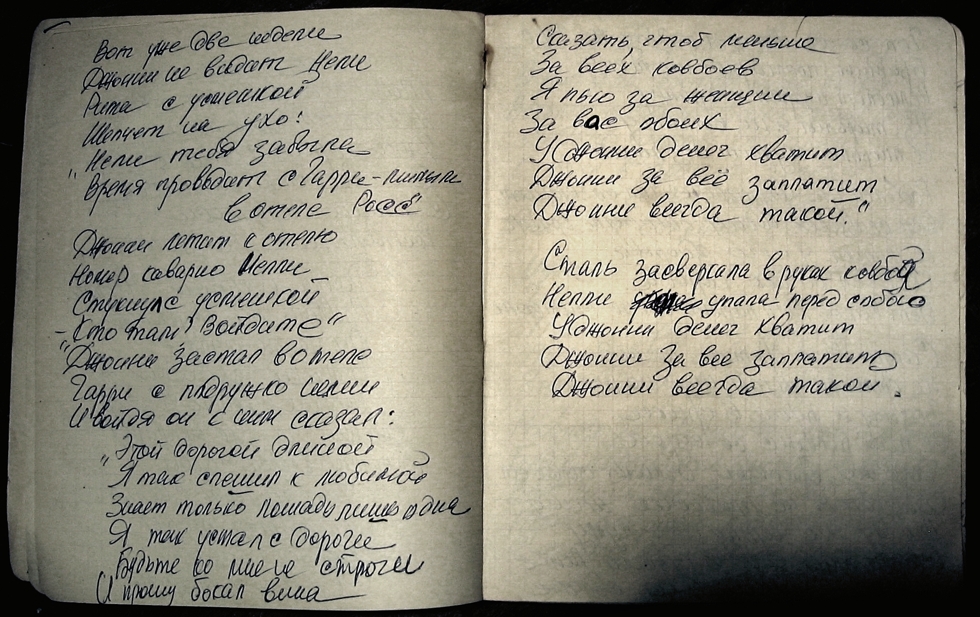 Вот уже две недели
Джонни не видит Нели
Рита с усмешкой
Шепчет на ухо:
"Нели тебя забыла
Время проводит с Гарри-
в отеле Росс"
Джонни летит к отелю
Номер коварно Нелли
Стукнул с усмешкой
- "Кто там? Войдите"
Джонни застал в отеле
Гарри с подружко Нелли
И войдя он с ним сказал:
"Этой дорогой длиной
Я так спешил к любимой
Знает только лошадь лишь одна
Я так устал с дороги
Будьте ко мне не строги
И прошу бокал вина
Сказать, чтоб меньше
За всех ковбоев
Я пью за женщин
За вас обоих
У Джонни денег хватит
Джонни за всё заплатит
Джонни всегда такой."
Сталь засверкала в руках ковбоя
Нелли упала перед собою
У Джонни денег хватит
Джонни за все заплатит
Джонни всегда такой.